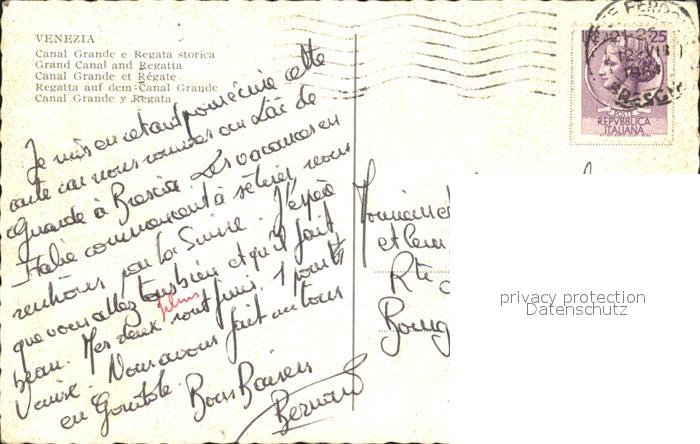 VENEZIA
Canal Grande e Regata storica
Grand Canal and Regatta
Canal Grande et Régate
Regatta auf dem Canal Grande
Canal Grande y Regata
Je suis en retard pour écrire cette
carte car nous sommes au Lac de
Garde à Brescia. Les vacances en
Italie commencent à s'étirer, nous
rentrons par la Suisse. J'espère
que vous allez tous bien et qu'il fait
beau. Mes deux films sont finis. 1 pour
Venise. Nous avons fait un tour
en Gondole. Bons Baisers
Bernard
25
POSTE
REPVBBLICA
ITALIANA
BRESCIA
Monsieur et
et leur
Rte
Bourg
privacy protection
Datenschutz